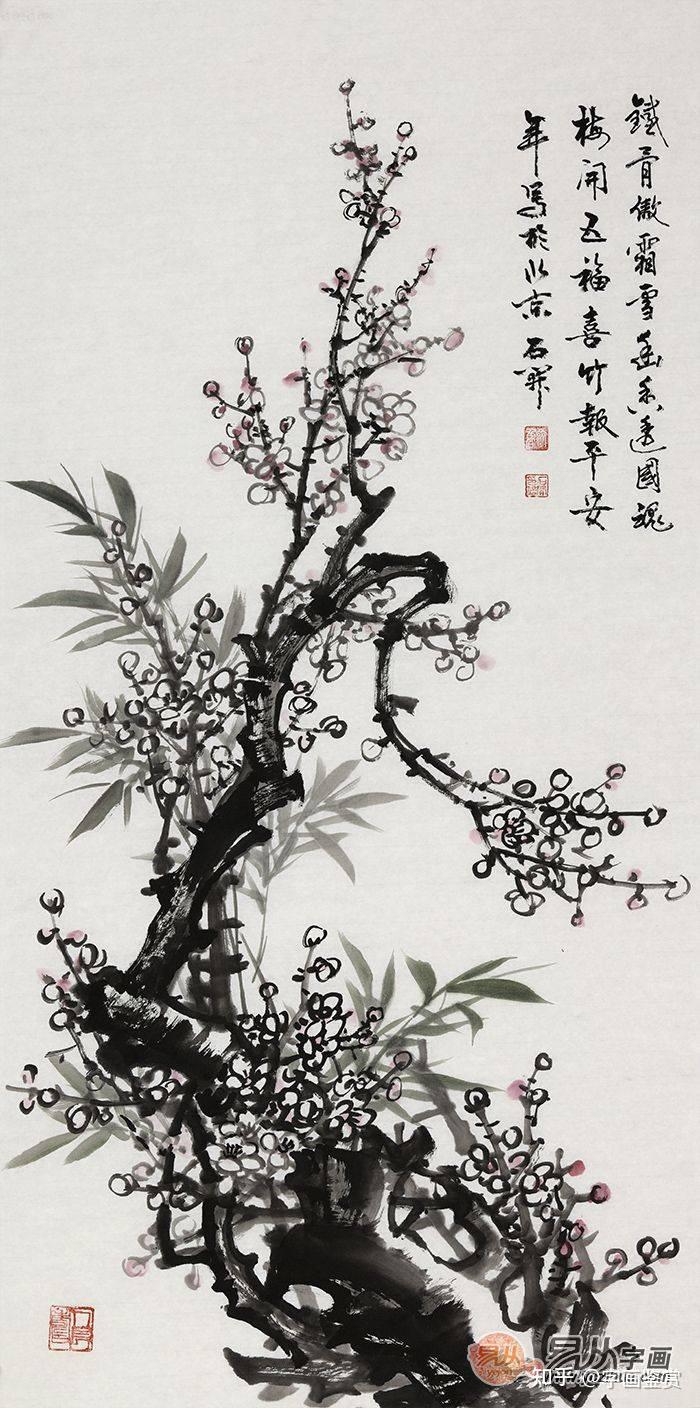 鐵骨傲霜雪幽香透國魂
梅開五福喜竹報平安
年寫於北京石開
易从
易从字画
知乎 @字画鉴赏